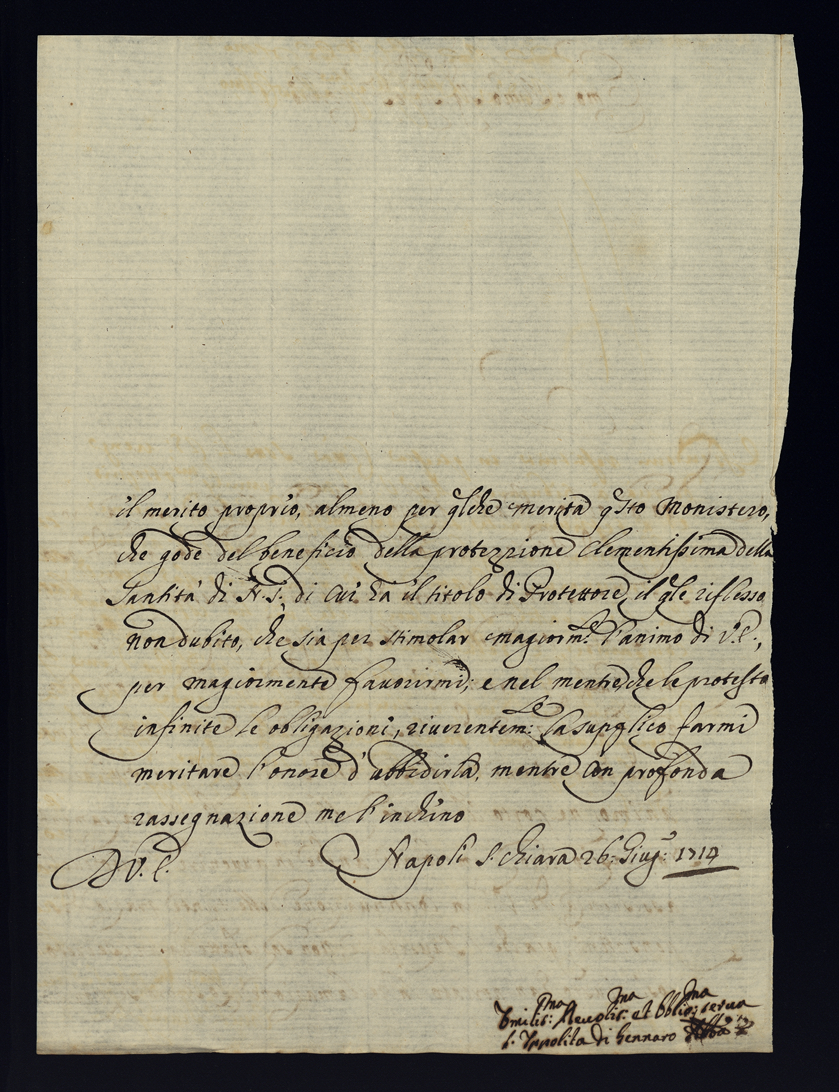 il merito proprio, almeno per qlche merita qsto Monistero,
che gode del beneficio della protezzione Clementissima della
Santità di N. S. di cui ha il titolo di Protettore, il qle riflesso
non dubito, che sia per stimolar magiormte l'animo di V. E.,
per magiormente favorirmi; e nel mentre che le protesto
infinite le obligazioni, riverentemte: la supplico farmi
meritare l'onore d'ubbidirla, mentre con profonda
rassegnazione me l'inchino
D V. E. Napoli S. Chiara 26: Giugo: 1714
Umilis:ma Devotis:ma et Oblig:ma serva
S. Ippolita di Gennaro